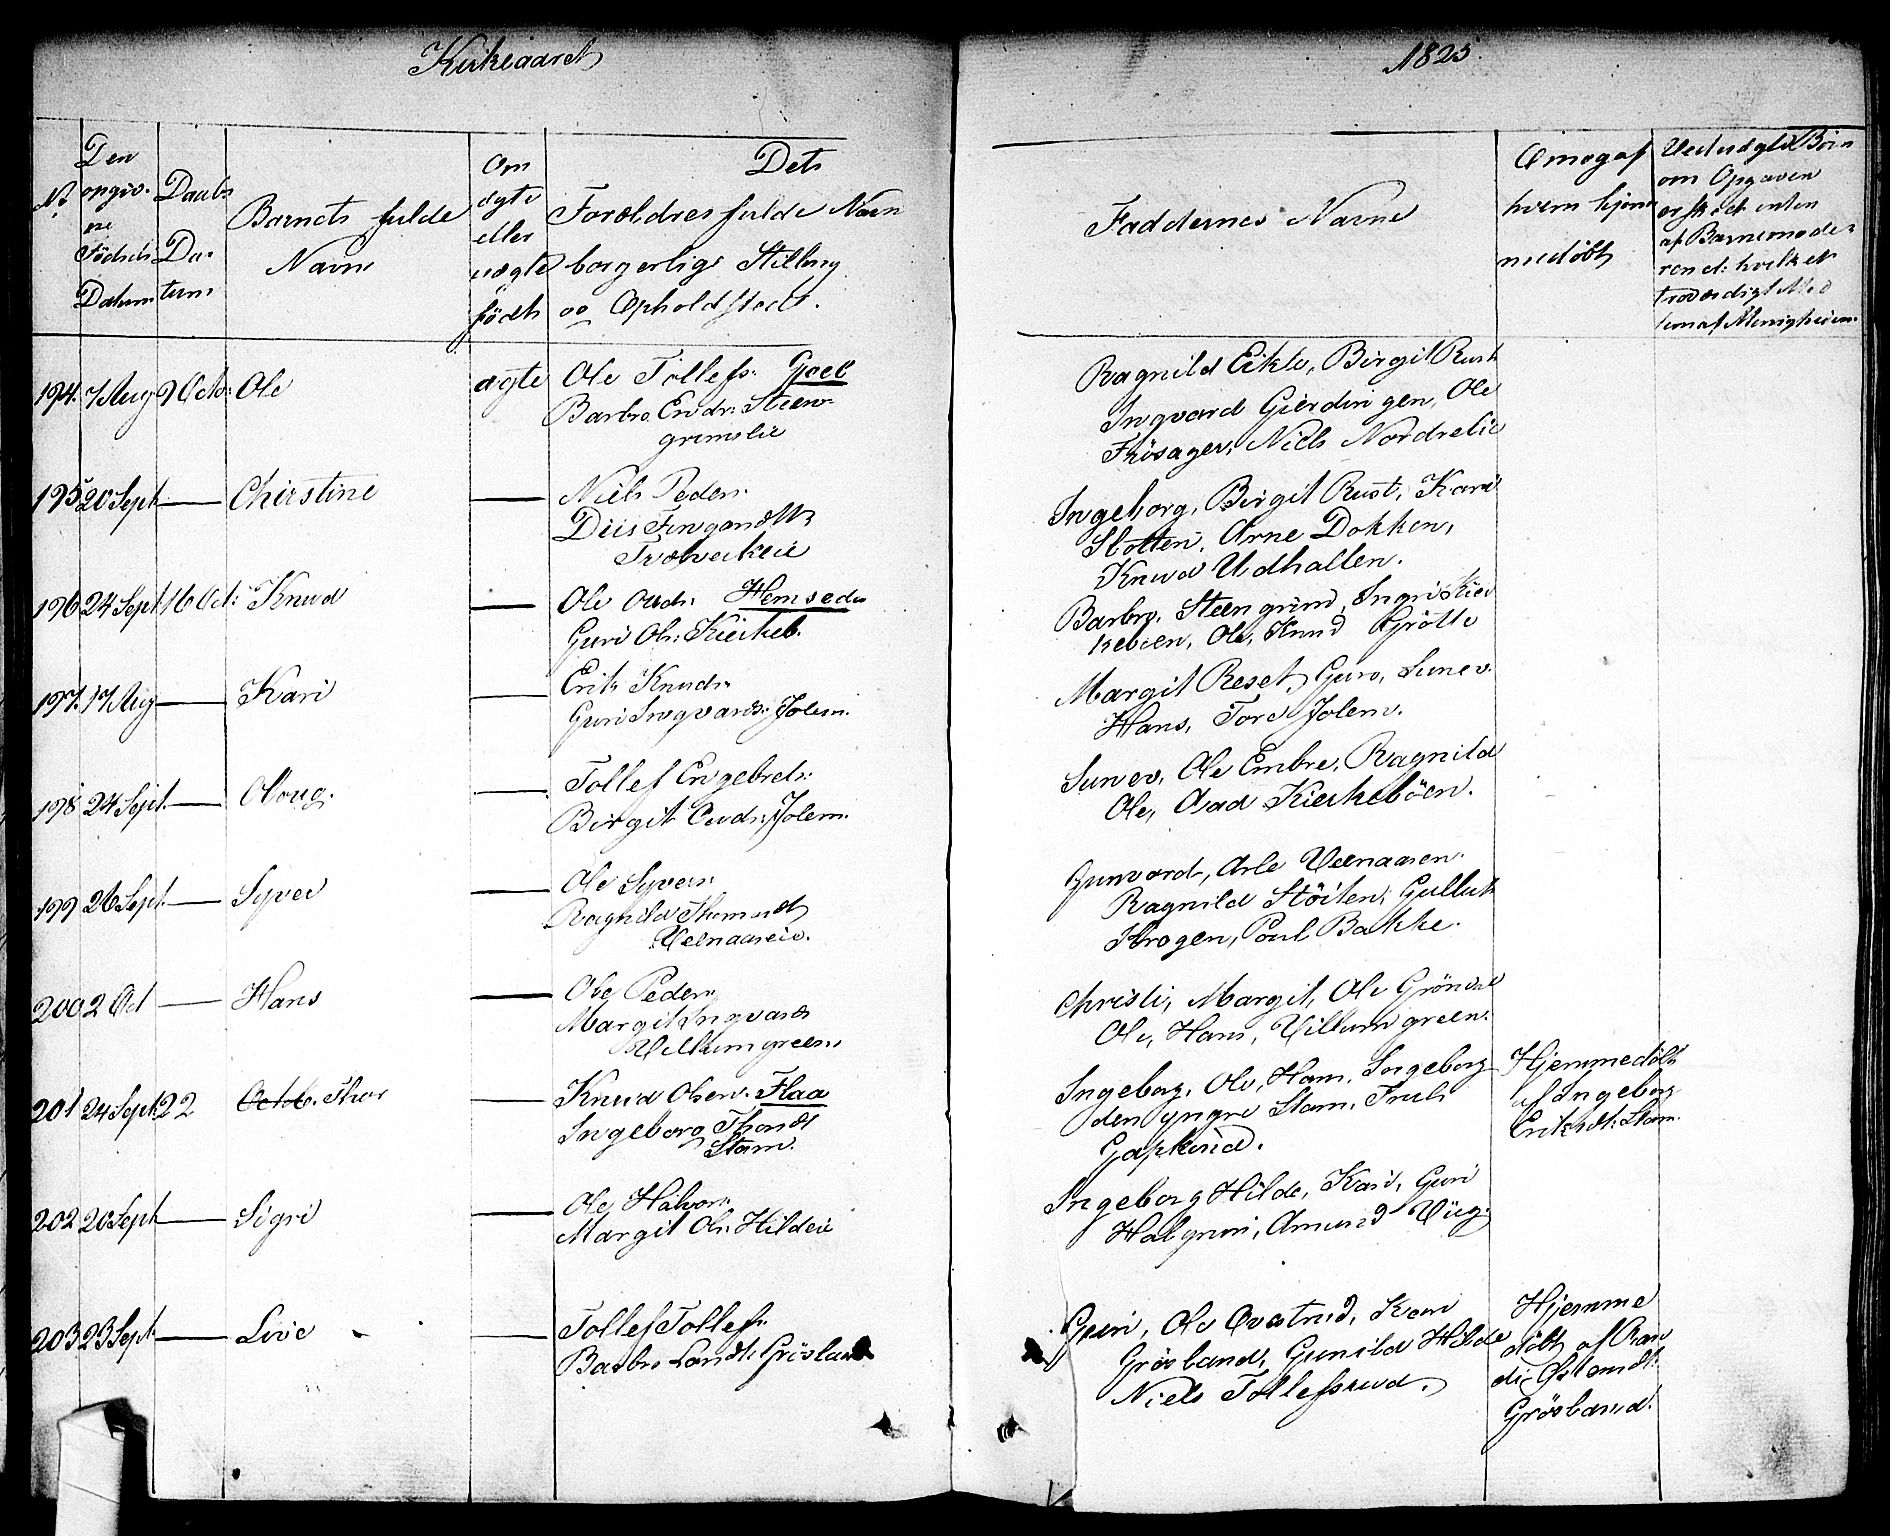 Kirkeaaret 1825.
No
Den
opgiv-
ne
Födsels
Datum
Daabs
Da-
tum
Barnets fulde
Navn
Om
ægte
eller
uægte
födt
Dets
Forældres fulde Navn
borgerlige Stilling
og Opholdsted.
Faddernes Navne
Om og af
hvem hjem
medöbt
Ved uægte Börn
om Opgaven
er skeet enten
af Barnemode-
ren el: hvilket
troværdigt Med
lem af Menigheden.
194. 7 Aug 9 Octo: Ole ægte Ole Tollefs: Goel
Barbro Endr: Steen-
grimslie
Ragnild Eikle, Birgit Rust
Ingvard Gierdingen, Ole
Frösager, Niels Nordrelie
195 20 Sept — Christine — Niels Peders:
Fingardtr
Ingeborg, Birgit Rust, Kari
Slotten, Arne Dokken,
Knud Udhallen.
196 24 Sept 16 Oct: Knud — Ole Hemsedr
Guri Ols: Kirkeb.
Barbro, Steengrim, Ingri Kier
keböen, Ole, Knud Grötte
197. 17 Aug — Kari — Erik Knuds:
Guri Ingvards: Jolem.
Margit Reset, Guro, Sunev.
Hans, Tore Jolem.
198 24 Sept. — Oloug. — Tollef Engebrets:
Birgit Jolem.
Sunev, Ole Embre, Ragnild
Ole, Asad Kierkeböen.
199 26 Sept. — Syver — Ole Syvers:
Ragnild
Veenaaseie.
Gunvord, Arle Veenaasen.
Ragnild Stöiten, Gulluk
Krogen, Poul Bakke.
200 2 Oct — Hans — Ole Peders:
Margit Ingvards
Villumgreen.
Christi, Margit, Ole Gröndal
Ole, Hans, Villumgreen.
201 24 Sept 22 Octob. Thor — Knud Olsen. Flaa
Ingeborg Thordt
Stam.
Ingeborg, Ole, Ham, Ingeborg
den yngre Stam, Truls
Gapterud.
Hjemmedöbt
af Ingeborg
Eriksdt: Stam.
202 20 Sept — Sigri — Ole Halvors:
Margit Ols: Hildeie
Ingeborg Hilde, Kari, Guri
Halgrim, Amund Viig.
203 23 Sept — Live — Tollef Tollefs:
Barbro Lardt: Grösland
Guri, Ole Qvatrud, Kari
Grösland, Gunild Hilde
Niels Tollefsrud.
Hjemme
döbt af Ran
di Östendt:
Grösland.